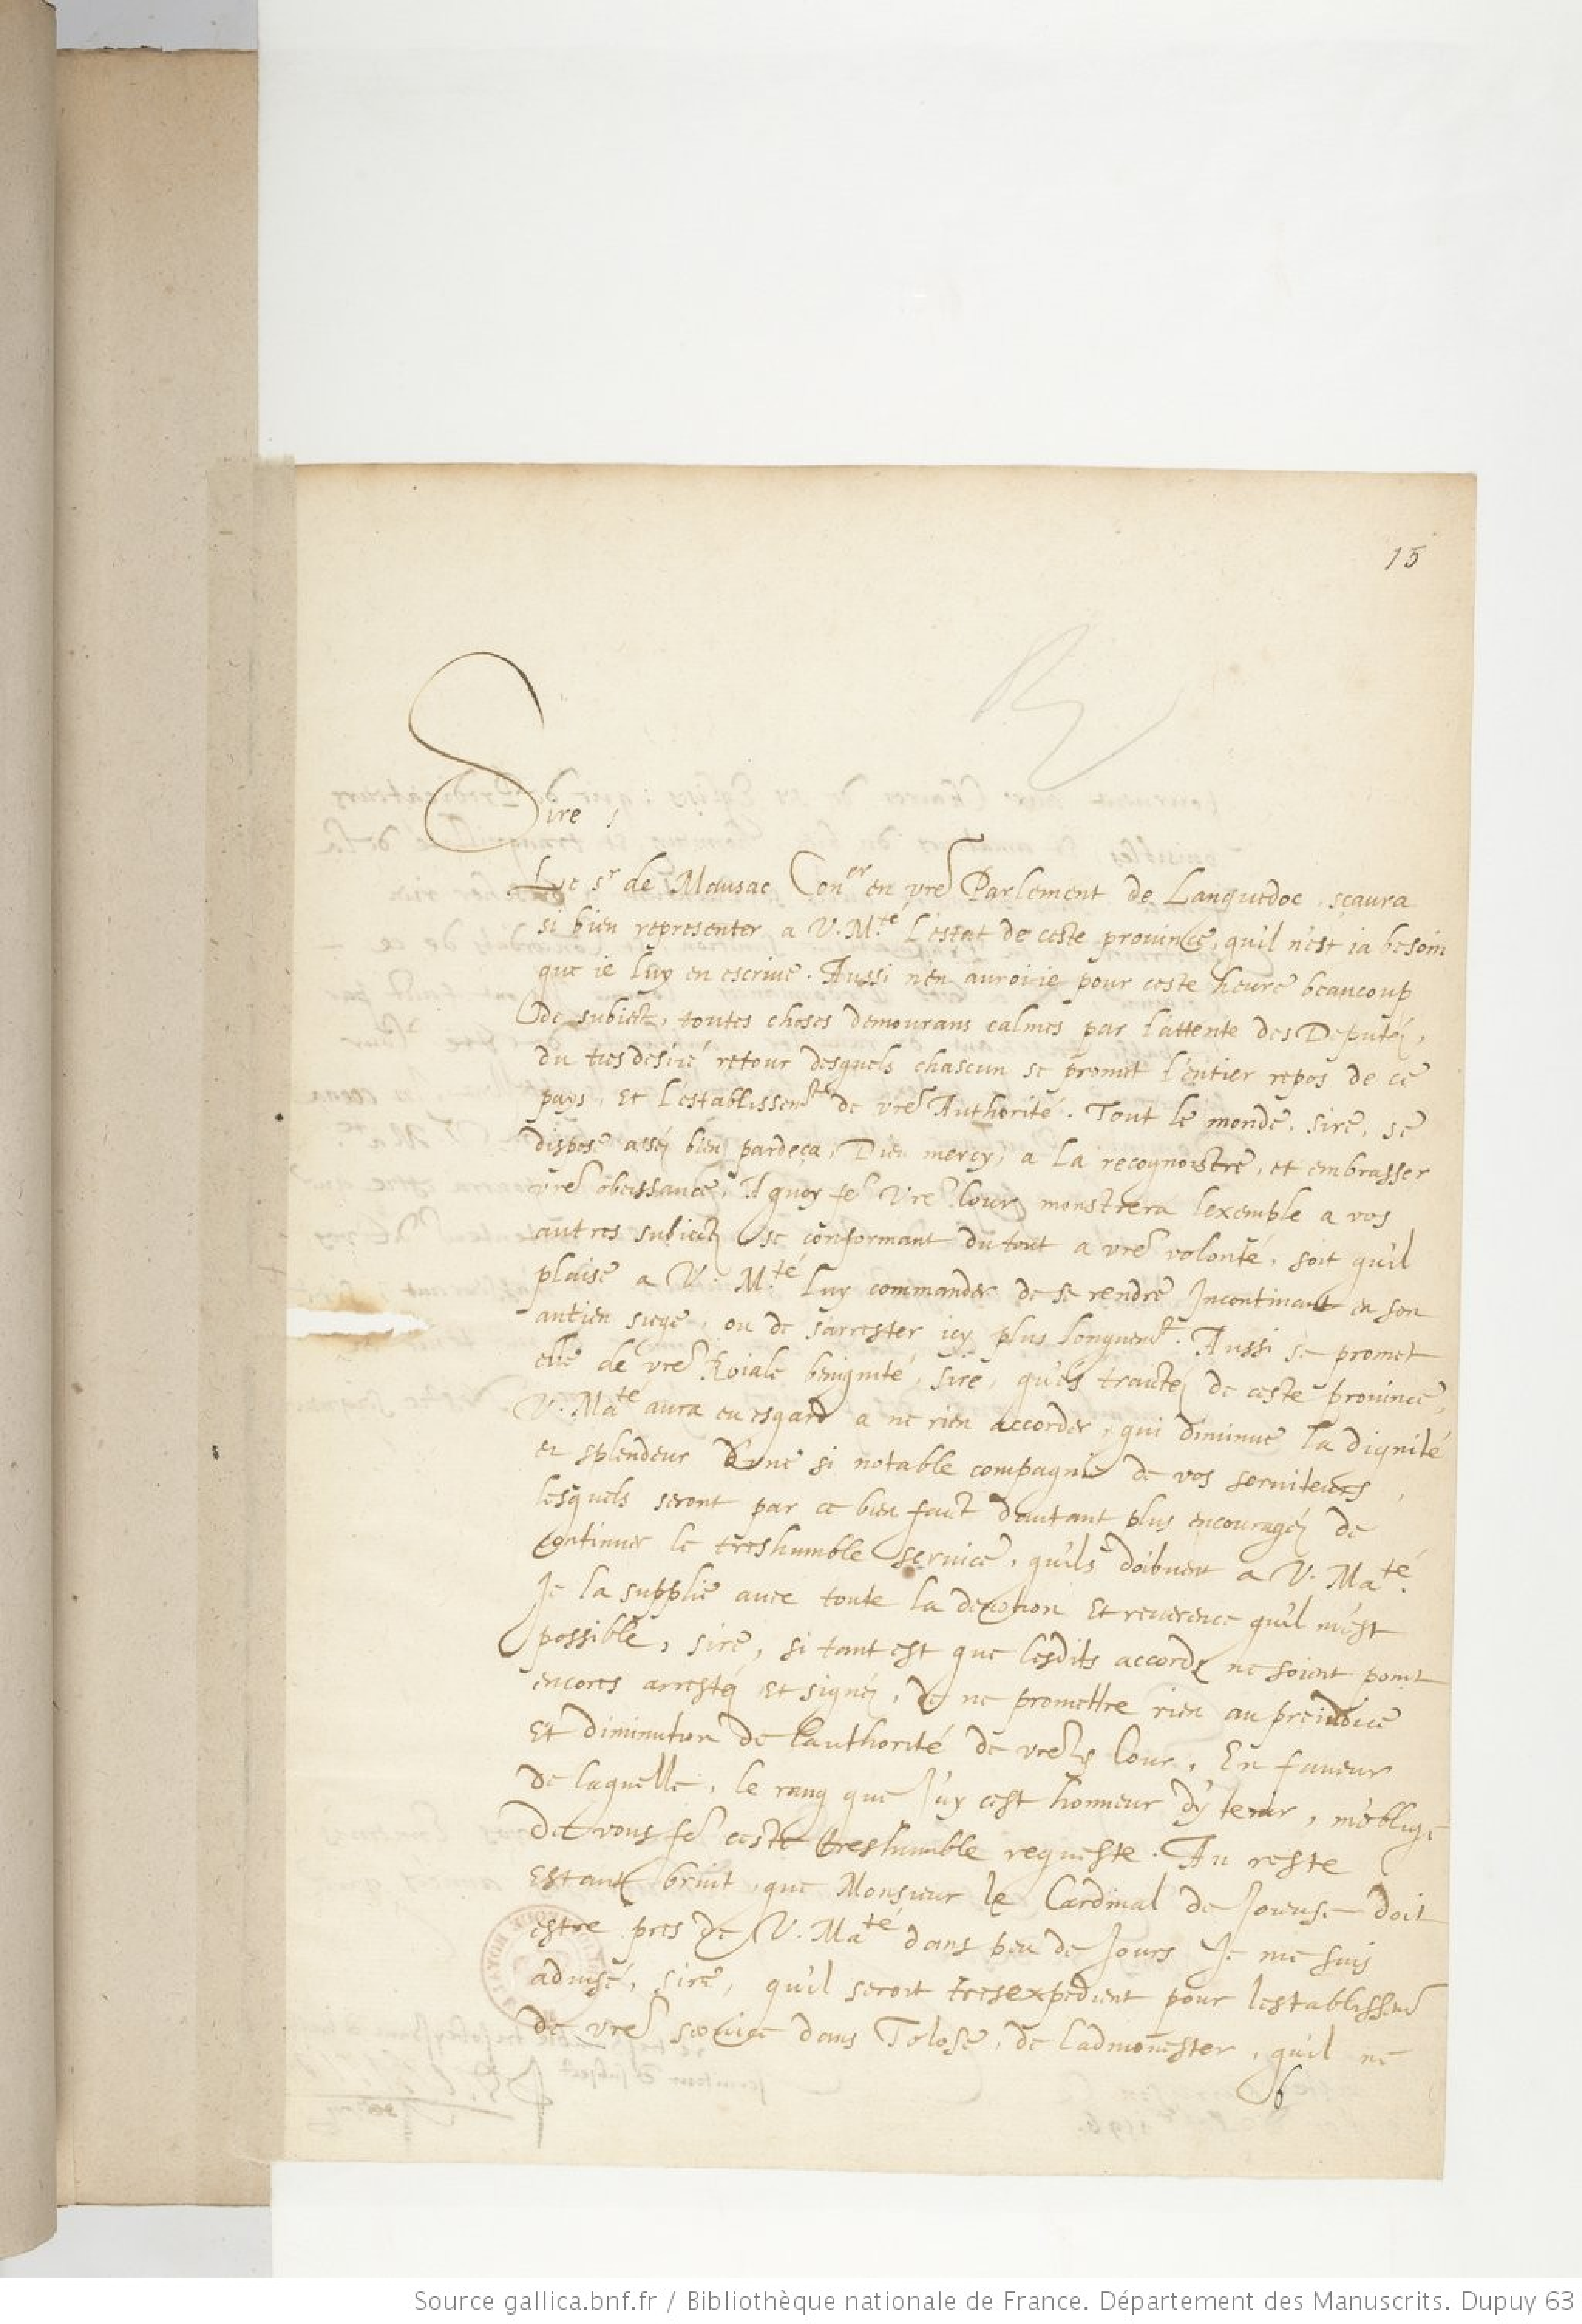 15
Sire,
Le sr de Mausac Coner en vre Parlement de Languedoc, sçaura
si bien representer a V. Mté L'estat de ceste prouince, qu'il n'est ia besoin
que ie luy en escriue. Aussi n'en auroi-ie pour ceste heure beaucoup
de subiect, toutes choses demourans calmes par l'attente des Deputéz,
du tresdesiré retour desquels chascun se promet l'entier repos de ce
pays, et l'establissemt de vre Authorité. Tout le monde, sire, se
dispose asséz bien pardeça, Dieu mercy, a la recognoistre, et embrasser
vre obeissance. A quoy se vre Cour monstrera l'exemple a vos
autres subiectz se conformant du tout a vre volonté, soit qu'il
plaise a V. Mté luy commander de se rendre Incontinant en son
antien siege, ou de s'arrester icy plus longuemt. Aussi se promet
elle de vre Roiale benignité, sire, qu'és traictéz de ceste prouince,
V. Maté aura eu esgard a ne rien accorder, qui diminue la dignité
et splendeur d'vne si notable compagnie de vos seruiteurs,
lesquels seront par ce bien faict d'autant plus encouragéz de
continuer le treshumble seruice, qu'ils doibuent a V. Maté.
Je la supplie auec toute la deuotion et reuerence qu'il m'est
possible, sire, si tant est que lesdits accordz ne soient point
encores arrestéz et signéz, de ne promettre rien au preiudice
et diminution de l'authorité de vre Cour, En faueur
de laquelle, le rang que J'ay cest honneur d'y tenir, m'oblige
de vous fe ceste treshumble requeste. Au reste
estant bruit, que Monsieur le Cardinal de Joieuse doit
estre pres de V. Maté dans peu de Jours Je me suis
aduisé, sire, qu'il seroit tresexpedient pour l'establissemt
de vre seruice dans Tolose, de l'admonester, qu'il ne
b
Source gallica.bnf.fr / Bibliothèque nationale de France. Département des Manuscrits. Dupuy 63